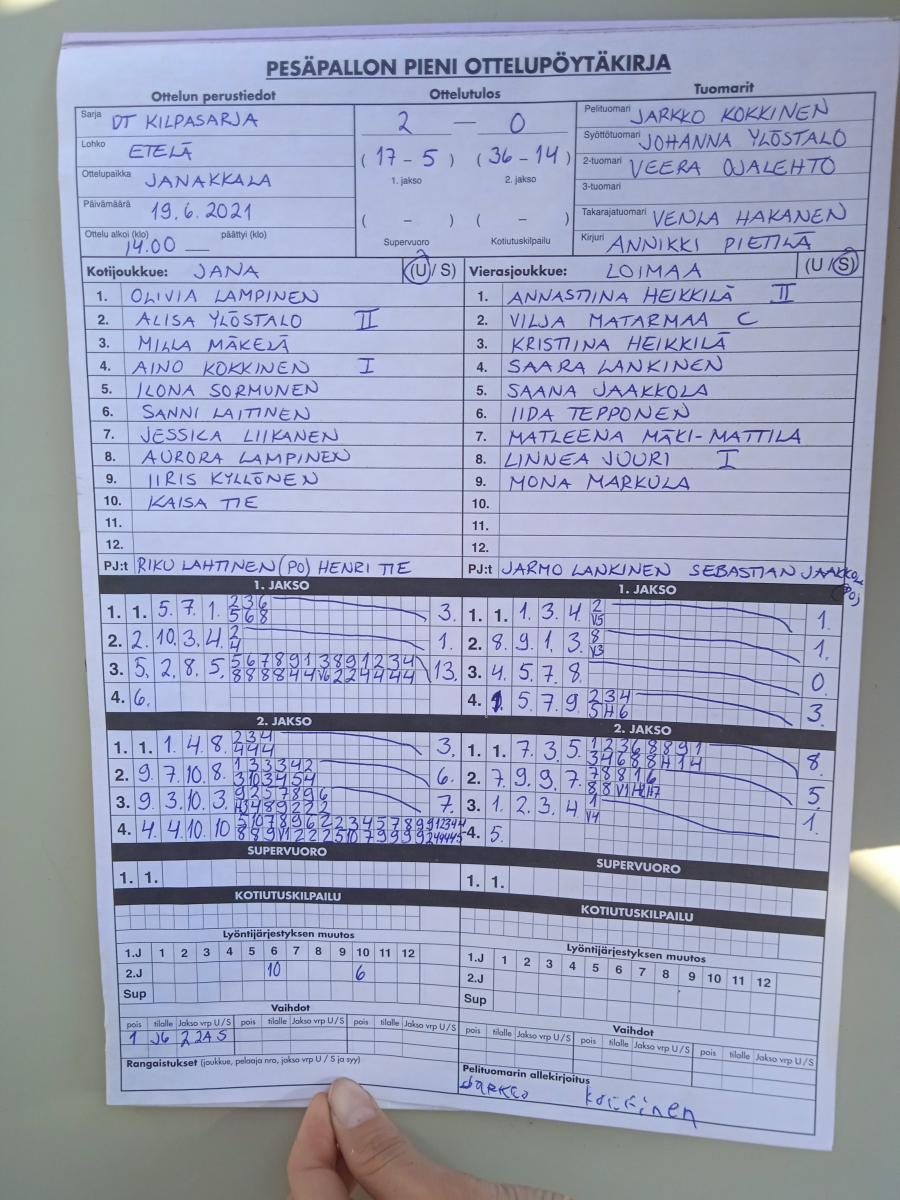 PESÄPALLON PIENI OTTELUPÖYTÄKIRJA
Ottelun perustiedot
Sarja DT KILPASARJA
Lohko ETELÄ
Ottelupaikka JANAKKALA
Päivämäärä 19.6.2021
Ottelu alkoi (klo) 14.00 päättyi (klo)
Ottelutulos
2 — 0
(17 - 5) (36 - 14)
1. jakso 2. jakso
( - ) ( - )
Supervuoro Kotiutuskilpailu
Tuomarit
Pelituomari JARKKO KOKKINEN
Syöttötuomari JOHANNA YLÖSTALO
2-tuomari VEERA OJALEHTO
3-tuomari
Takarajatuomari VENLA HAKANEN
Kirjuri ANNIKKI PIETILÄ
Kotijoukkue: JANA (U / S)
1. OLIVIA LAMPINEN
2. ALISA YLÖSTALO II
3. MILLA MÄKELÄ
4. AINO KOKKINEN I
5. ILONA SORMUNEN
6. SANNI LAITINEN
7. JESSICA LIIKANEN
8. AURORA LAMPINEN
9. IIRIS KYLLÖNEN
10. KAISA TIE
11.
12.
PJ:t RIKU LAHTINEN (PO) HENRI TIE
Vierasjoukkue: LOIMAA (U / S)
1. ANNASTIINA HEIKKILÄ II
2. VILJA MATARMAA C
3. KRISTIINA HEIKKILÄ
4. SAARA LANKINEN
5. SAANA JAAKKOLA
6. IIDA TEPPONEN
7. MATLEENA MÄKI-MATTILA
8. LINNEA JUURI I
9. MONA MARKULA
10.
11.
12.
PJ:t JARMO LANKINEN SEBASTIAN JAAKKOLA (PO)
1. JAKSO
1. 1. 5. 7. 1. 2 3 6 3.
5 6 8
2. 2. 10. 3. 4. 2 1.
4
3. 5. 2. 8. 5. 5 6 7 8 9 1 3 8 9 1 2 3 4 13.
8 8 8 8 4 4 V6 2 2 4 4 4 4
4. 6.
2. JAKSO
1. 1. 1. 4. 8. 2 3 4 3.
4 4 4
2. 9. 7. 10. 8. 1 3 3 3 4 2 6.
3 10 3 4 5 4
3. 9. 3. 10. 3. 9 2 5 7 8 9 6 7.
4. 4. 4. 10. 10
SUPERVUORO
1. 1.
KOTIUTUSKILPAILU
1. JAKSO
1. 1. 1. 3. 4. 2 1.
V5
2. 8. 9. 1. 3. 8 1.
V3
3. 4. 5. 7. 8. 0.
4. 1. 5. 7. 9. 2 3 4 3.
5 H 6
2. JAKSO
1. 1. 7. 3. 5. 1 2 3 6 8 8 9 1 8.
3 4 6 8 8 H 1 4
2. 7. 9. 9. 7. 7 8 8 1 6 5.
3. 1. 2. 3. 4. 1 1.
V4
4. 5.
SUPERVUORO
1. 1.
KOTIUTUSKILPAILU
Lyöntijärjestyksen muutos
1.J 1 2 3 4 5 6 7 8 9 10 11 12
2.J 10 6
Sup
Vaihdot
pois tilalle Jakso vrp U / S pois tilalle Jakso vrp U / S pois tilalle Jakso vrp U / S
1 J6 2 2A S
Rangaistukset (joukkue, pelaaja nro, jakso vrp U / S ja syy)
Lyöntijärjestyksen muutos
1.J 1 2 3 4 5 6 7 8 9 10 11 12
2.J
Sup
Vaihdot
pois tilalle Jakso vrp U / S pois tilalle Jakso vrp U / S pois tilalle Jakso vrp U / S
Pelituomarin allekirjoitus
Jarkko Kokkinen